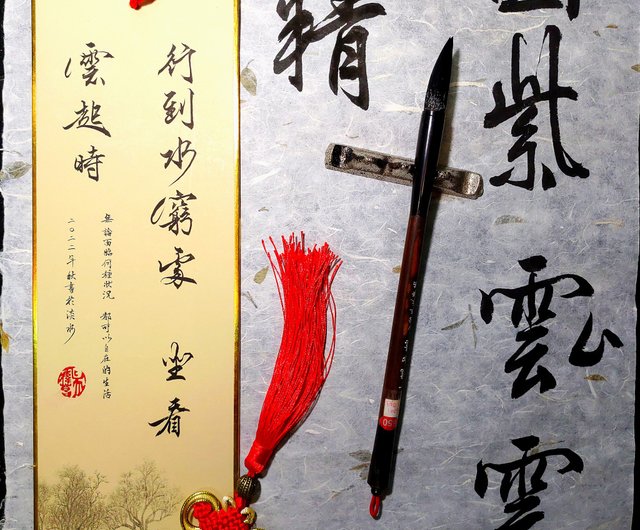 紫雲雲
精
行到水窮處 坐看
雲起時
無論面臨何種狀況 都可以自在的生活
二〇二二年秋書於淡水
50